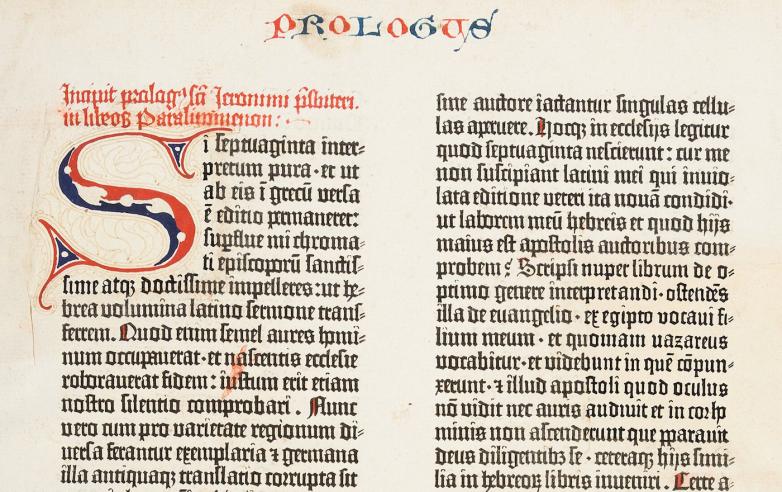 PROLOGUS
Incipit prologꝰ sc̄i Ieronimi p̄sbiteri.
in libros Paralipomenon:
Si septuaginta inter⸗
pretum pura · et ut
ab eis ī grecū versa
ē editio permaneret:
supflue mi chroma⸗
ti episcoporū sanctis⸗
sime atqꝫ doctissime impelleres: ut he⸗
brea volumina latino sermone trans⸗
ferrem. Quod enim semel aures homi⸗
num occupauerat · et nascentis ecclesie
roborauerat fidem: iustum erit etiam
nostro silentio comprobari. Nunc
vero cum pro varietate regionum di⸗
uersa ferantur exemplaria ⁊ germana
illa antiquaqꝫ translatio corrupta sit
sine auctore iactantur singulas cellu⸗
las aperuere. Hocqꝫ in ecclesijs legitur
quod septuaginta nescierunt: cur me
non suscipiant latini mei qui inuio⸗
lata editione veteri ita nouā condidi·
ut laborem meū hebreis et quod hijs
maius est apostolis auctoribus com⸗
probem? Scripsi nuper librum de o⸗
ptimo genere interpretandi · ostendēs
illa de euangelio · ex egipto vocaui fi⸗
lium meum · et quoniam nazareus
vocabitur · et videbunt in quē cōpun⸗
xerunt · ⁊ illud apostoli quod oculus
nō vidit nec auris audiuit et in cor ho
minis non ascenderunt que ꝑparauit
deus diligentibꝫ se · ceteraqꝫ hijs simi⸗
lia in hebreoꝝ libris inueniri. Certe a⸗